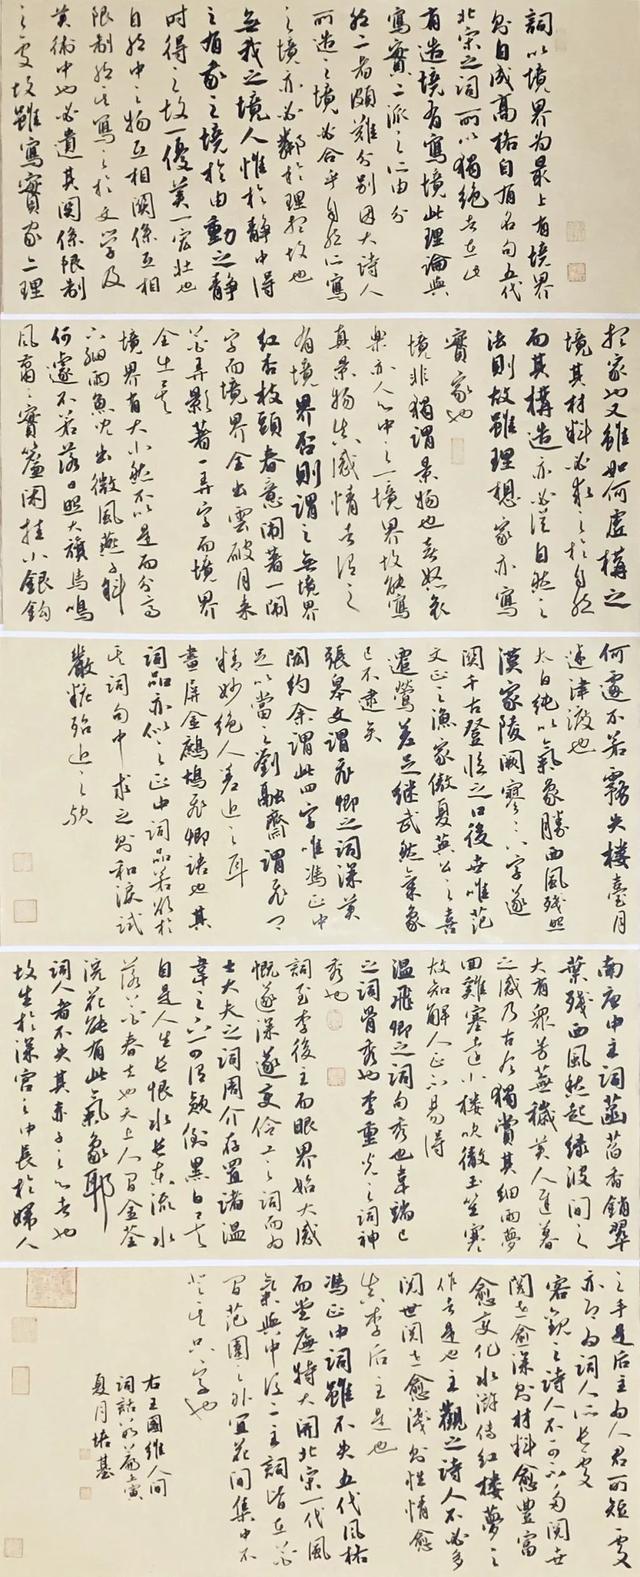 詞以境界为最上有境界
則自成高格自有名句五代
北宋之词所以獨绝者在此
有造境有寫境此理論與
寫實二派之所由分
然二者頗難分别因大诗人
所造之境必合乎自然所寫
之境亦必鄰於理想故也
無我之境人惟於静中得
之有我之境於由動之静
时得之故一優美一宏壮也
自然中之物互相関係互相
限制然其寫之於文学及
美術中也必遺其関係限制
之處故雖寫實家亦理
想家也又雖如何虚構之
境其材料必求之於自然
而其構造亦必從自然之
法則故雖理想家亦寫
實家也
境非獨謂景物也喜怒哀
樂亦人心中之一境界故能寫
真景物真感情者谓之
有境界否則謂之無境界
红杏枝頭春意闹著一闹
字而境界全出雲破月来
花弄影著一弄字而境界
全出矣
境界有大小然不以是而分高
下细雨魚児出微風燕子斜
何遽不若落日照大旗馬鳴
風蕭蕭寶簾闲挂小銀鈎
何遽不若霧失樓臺月
迷津渡也
太白纯以氣象勝西風残照
漢家陵阙寥寥八字遂
関千古登临之口後世唯范
文正之漁家傲夏英公之喜
遷鶯差足继武然氣象
已不逮矣
張皋文謂飛卿之词深美
閎约余謂此四字唯馮正中
足以當之劉融齋謂飛卿
精妙绝人差近之耳
畫屏金鹧鸪飛卿语也其
词品亦似之正中词品若欲於
其词句中求之則和淚試
嚴粧殆近之欤
南唐中主词菡萏香銷翠
葉残西風愁起绿波间大
有眾芳蕪穢美人遲暮
之感乃古今獨賞其细雨夢
回雞塞遠小樓吹徹玉笙寒
故知解人正不易得
温飛卿之词句秀也韋端己
之词骨秀也李重光之词神
秀也
詞至李後主而眼界始大感
慨遂深遂变伶工之词而为
士大夫之词周介存置諸温
韋之下可谓颠倒黑白矣
自是人生长恨水长東流水
落花春去也天上人间金荃
浣花能有此氣象耶
词人者不失其赤子之心者也
故生於深宫之中長於婦人
之手是后主为人君所短處
亦即为词人所长處
客觀之诗人不可不多閱世
閱世愈深則材料愈豊富
愈变化水滸傳红樓夢之
作者是也主觀之诗人不必多
閱世閱世愈淺則性情愈
真李后主是也
馮正中詞雖不失五代風格
而堂廡特大開北宋一代風
氣與中後二主詞皆在花
间范圍之外宜花间集中不
登其只字也
右王國維人间
词話
夏月培基